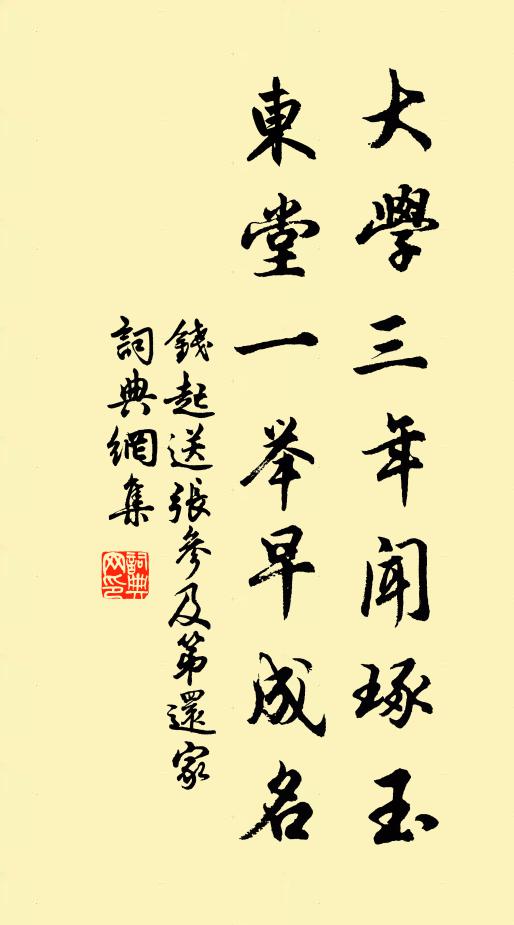 大學三年聞琢玉
東堂一举早成名
錢起送張參及第還家
詞典網集
詞典网印